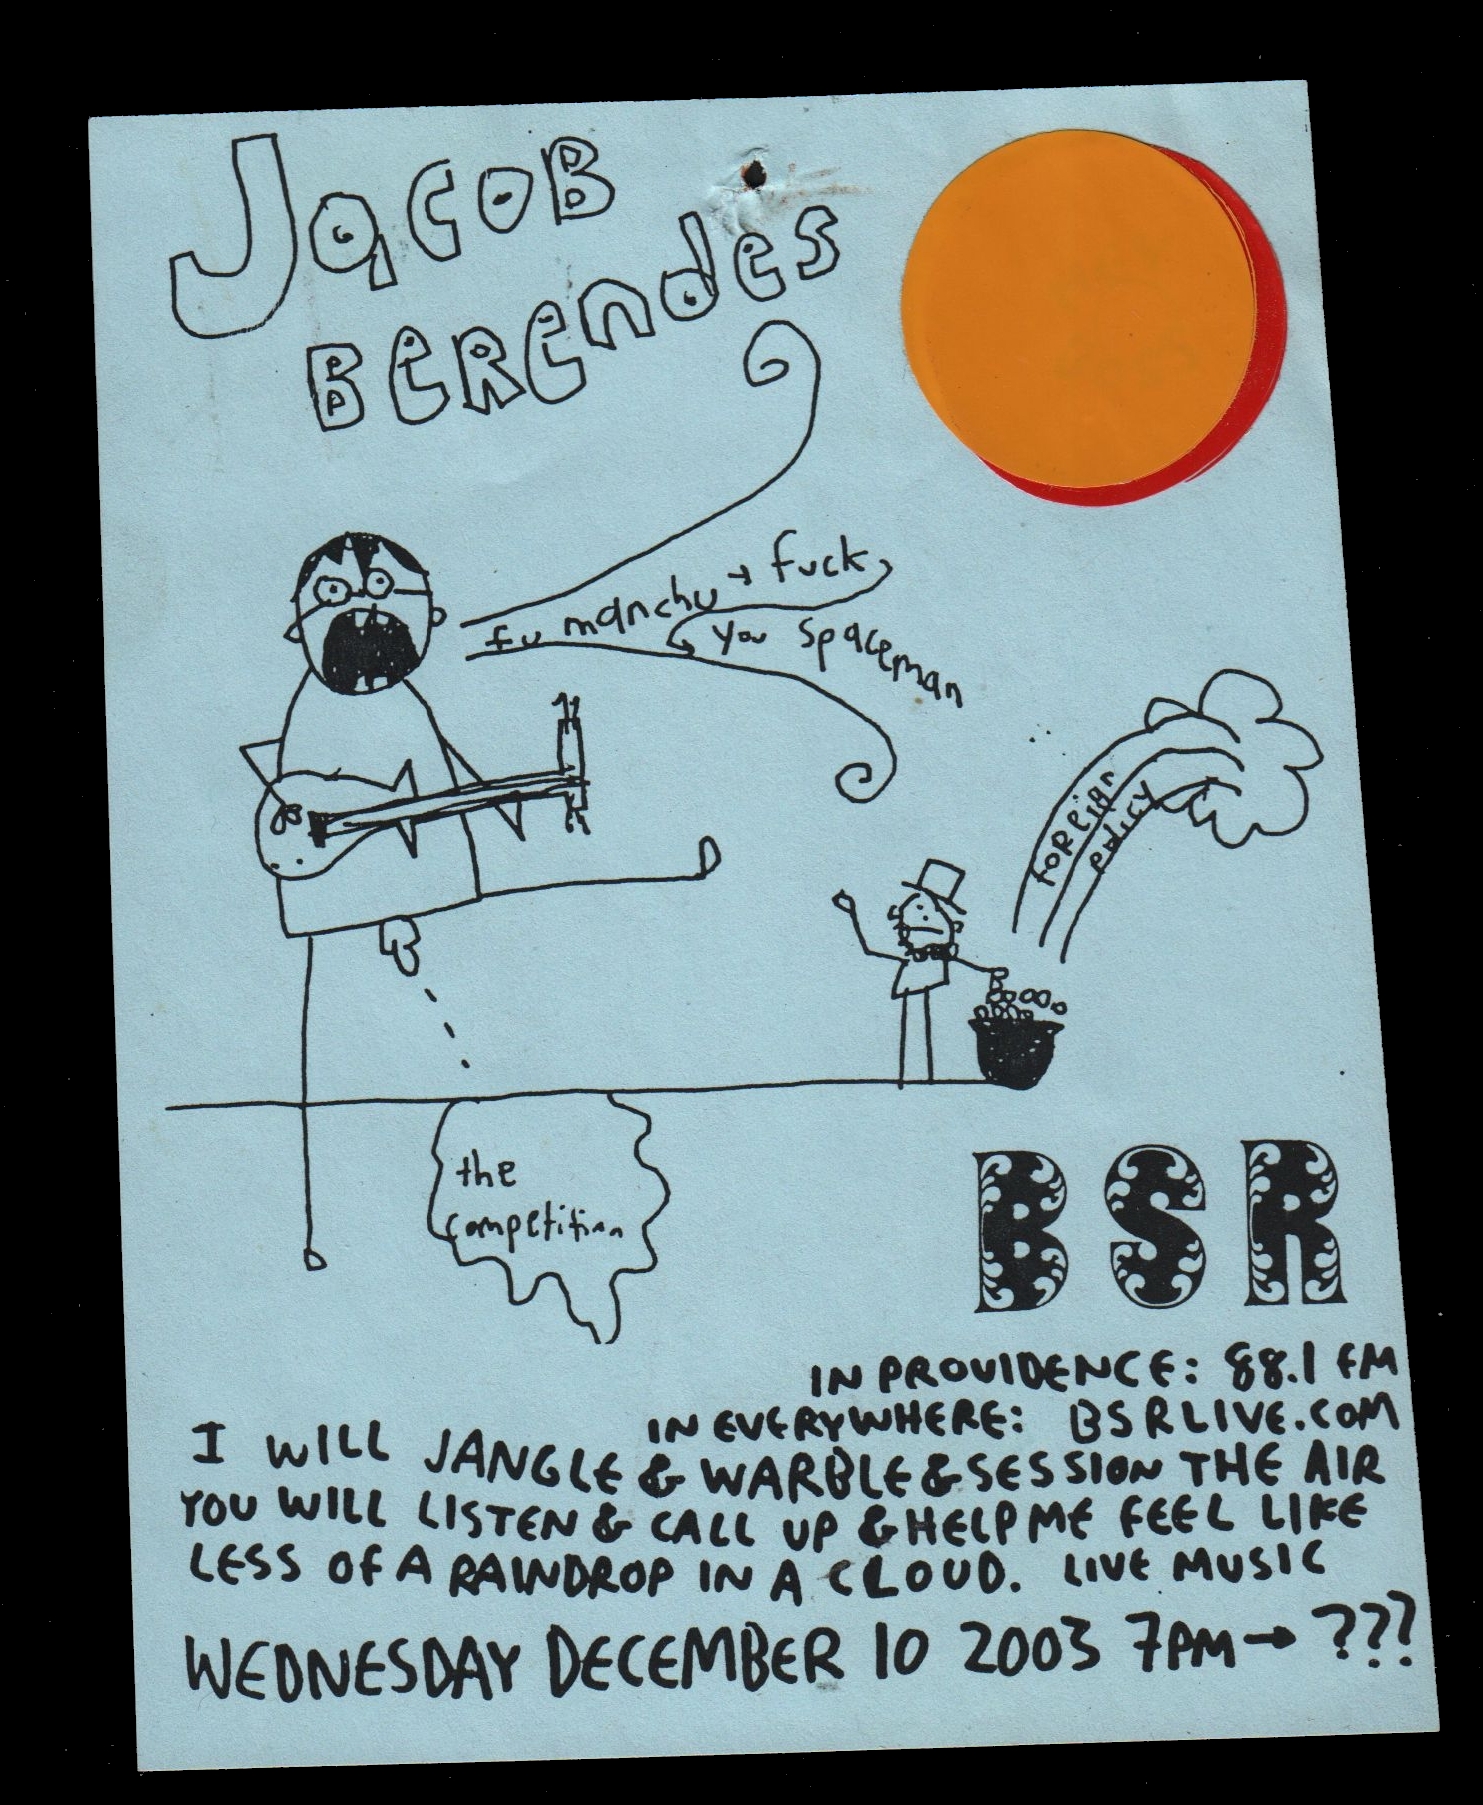 Jacob
Berendes
fu manchu → fuck
you spaceman
foreign
policy
the
competition
BSR
IN PROVIDENCE: 88.1 FM
IN EVERYWHERE: BSRLIVE.COM
I WILL JANGLE & WARBLE & SESSION THE AIR
YOU WILL LISTEN & CALL UP & HELP ME FEEL LIKE
LESS OF A RAINDROP IN A CLOUD. LIVE MUSIC
WEDNESDAY DECEMBER 10 2003 7PM → ???